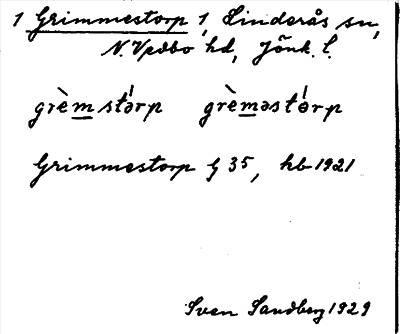 1 Grimmestorp 1, Linderås sn,
N. Vedbo hd, Jönk. l.
grèmstárp grèməstárp
Grimmestorp G 35, kb 1921
Sven Sandberg 1929